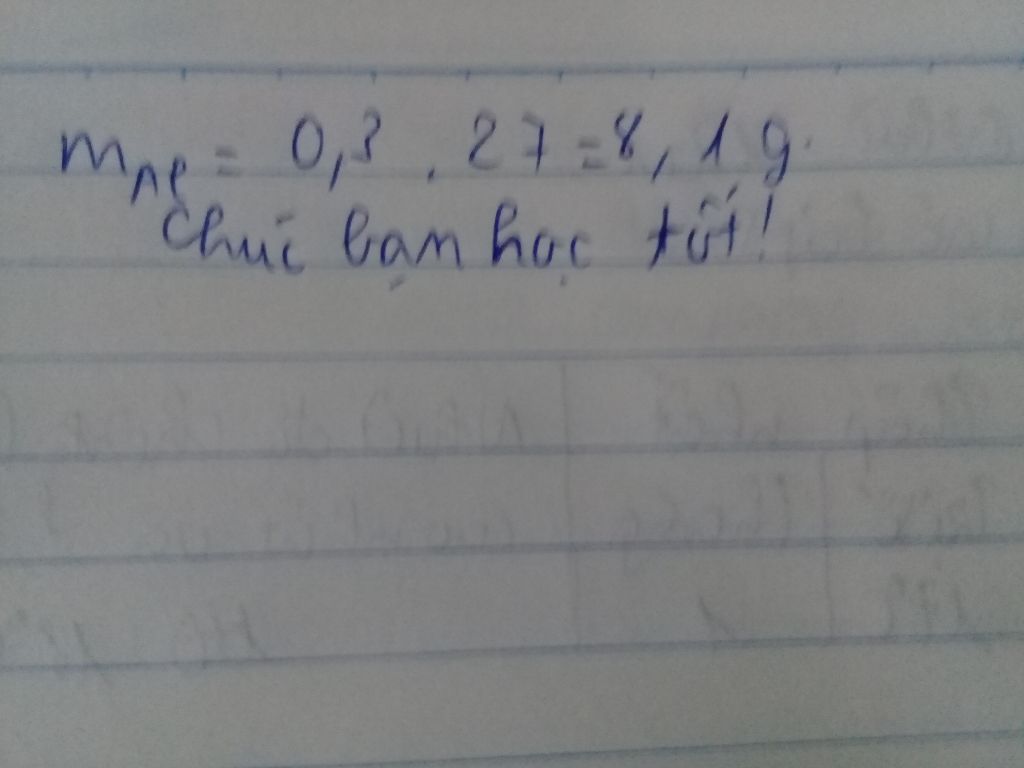 mAl = 0,3 . 27 = 8,1 g.
Chúc bạn học tốt!